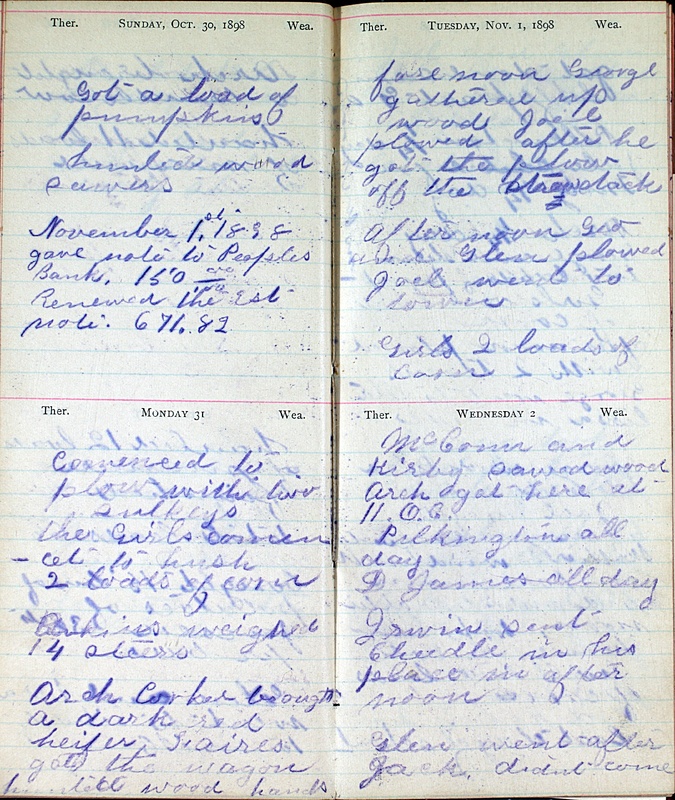 Ther. SUNDAY, OCT. 30, 1898 Wea.
Got a load of
pumpkins
hunted wood
sawers
November 1st, 1898
gave note to Peoples
Bank. 150 00/100
Renewed the Est
note. 671.82
Ther. MONDAY 31 Wea.
Comenced to
plow with two
sulkeys
the Girls comen
-ced to husk
2 loads of corn
weighed
14 steers
Arch Corkel bought
a dark red
heifer, Faires
got the wagon
hunted wood hands
Ther. TUESDAY, NOV. 1, 1898 Wea.
fore noon George
gathered up
wood Joel
plowed after he
got the plow
off the strawstack
After noon Geo
and Glen plowed
Joel went to
town
Girls 2 loads of
corn
Ther. WEDNESDAY 2 Wea.
McComn and
Kirby sawed wood
Arch got here at
11. O.C.
Pilkington all
day
D. James all day
Irwin sent
Cheedle in his
place in after
noon
Glen went after
Jack, didnt come